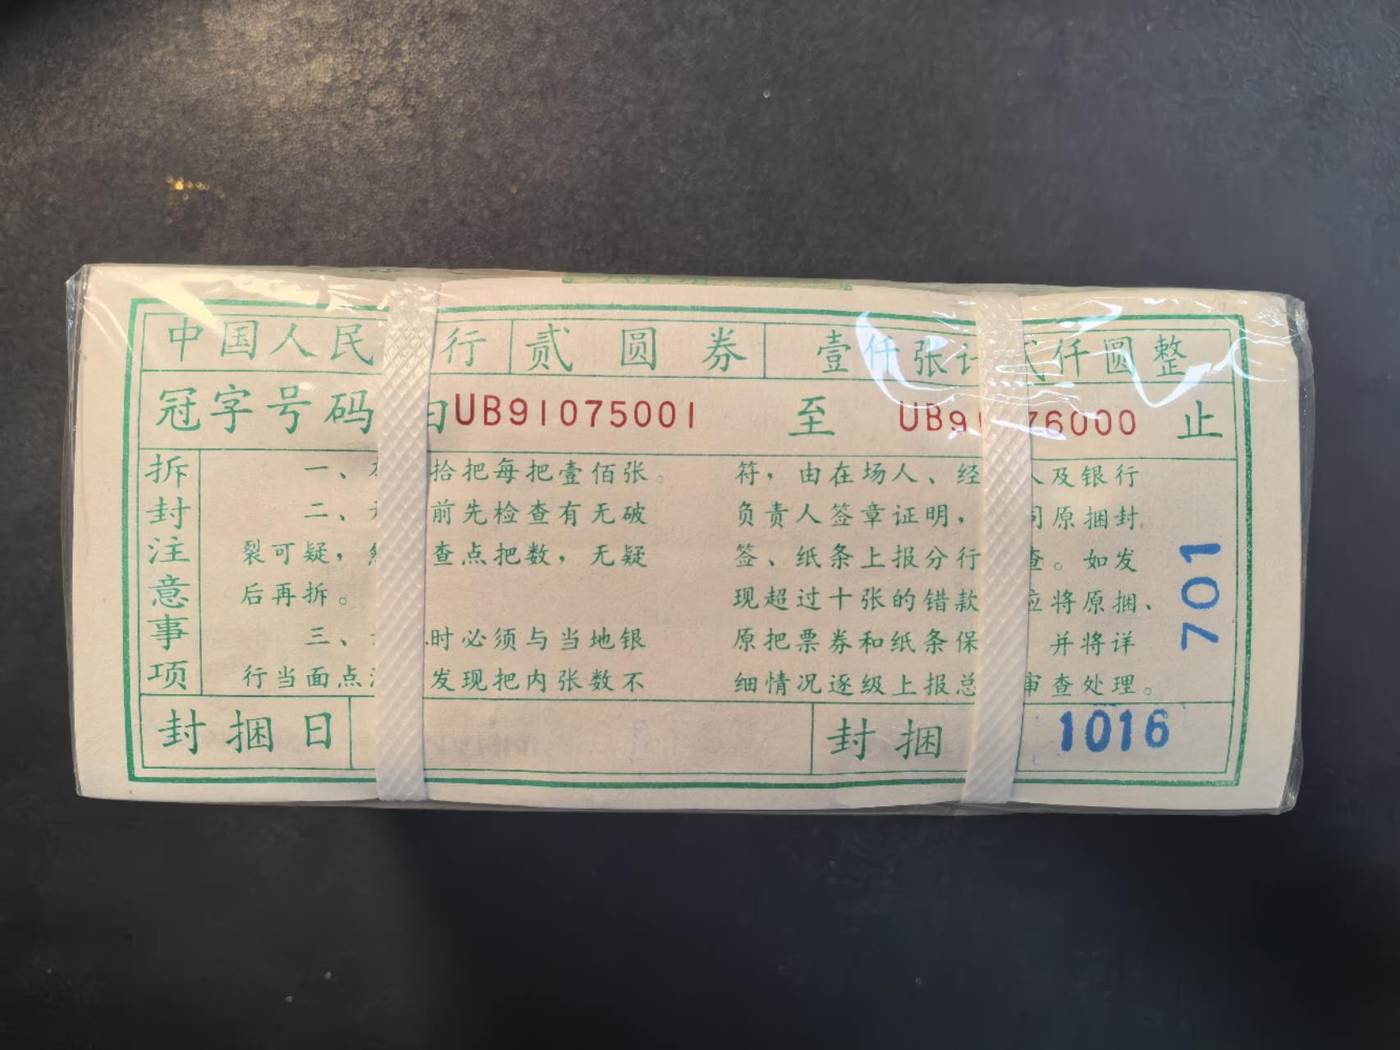 中国人民 行 贰圆券 壹仟张计贰仟圆整
冠字号码 由UB91075001 至 UB91076000 止
拆封注意事项
一、 拾把每把壹佰张。
二、 前先检查有无破
裂可疑, 查点把数,无疑
后再拆。
三、 时必须与当地银
行当面点 发现把内张数不
符,由在场人、经 人及银行
负责人签章证明, 同原捆封
签、纸条上报分行 查。如发
现超过十张的错款 应将原捆、
原把票券和纸条保 并将详
细情况逐级上报总 审查处理。
封捆日
封捆
1016
701